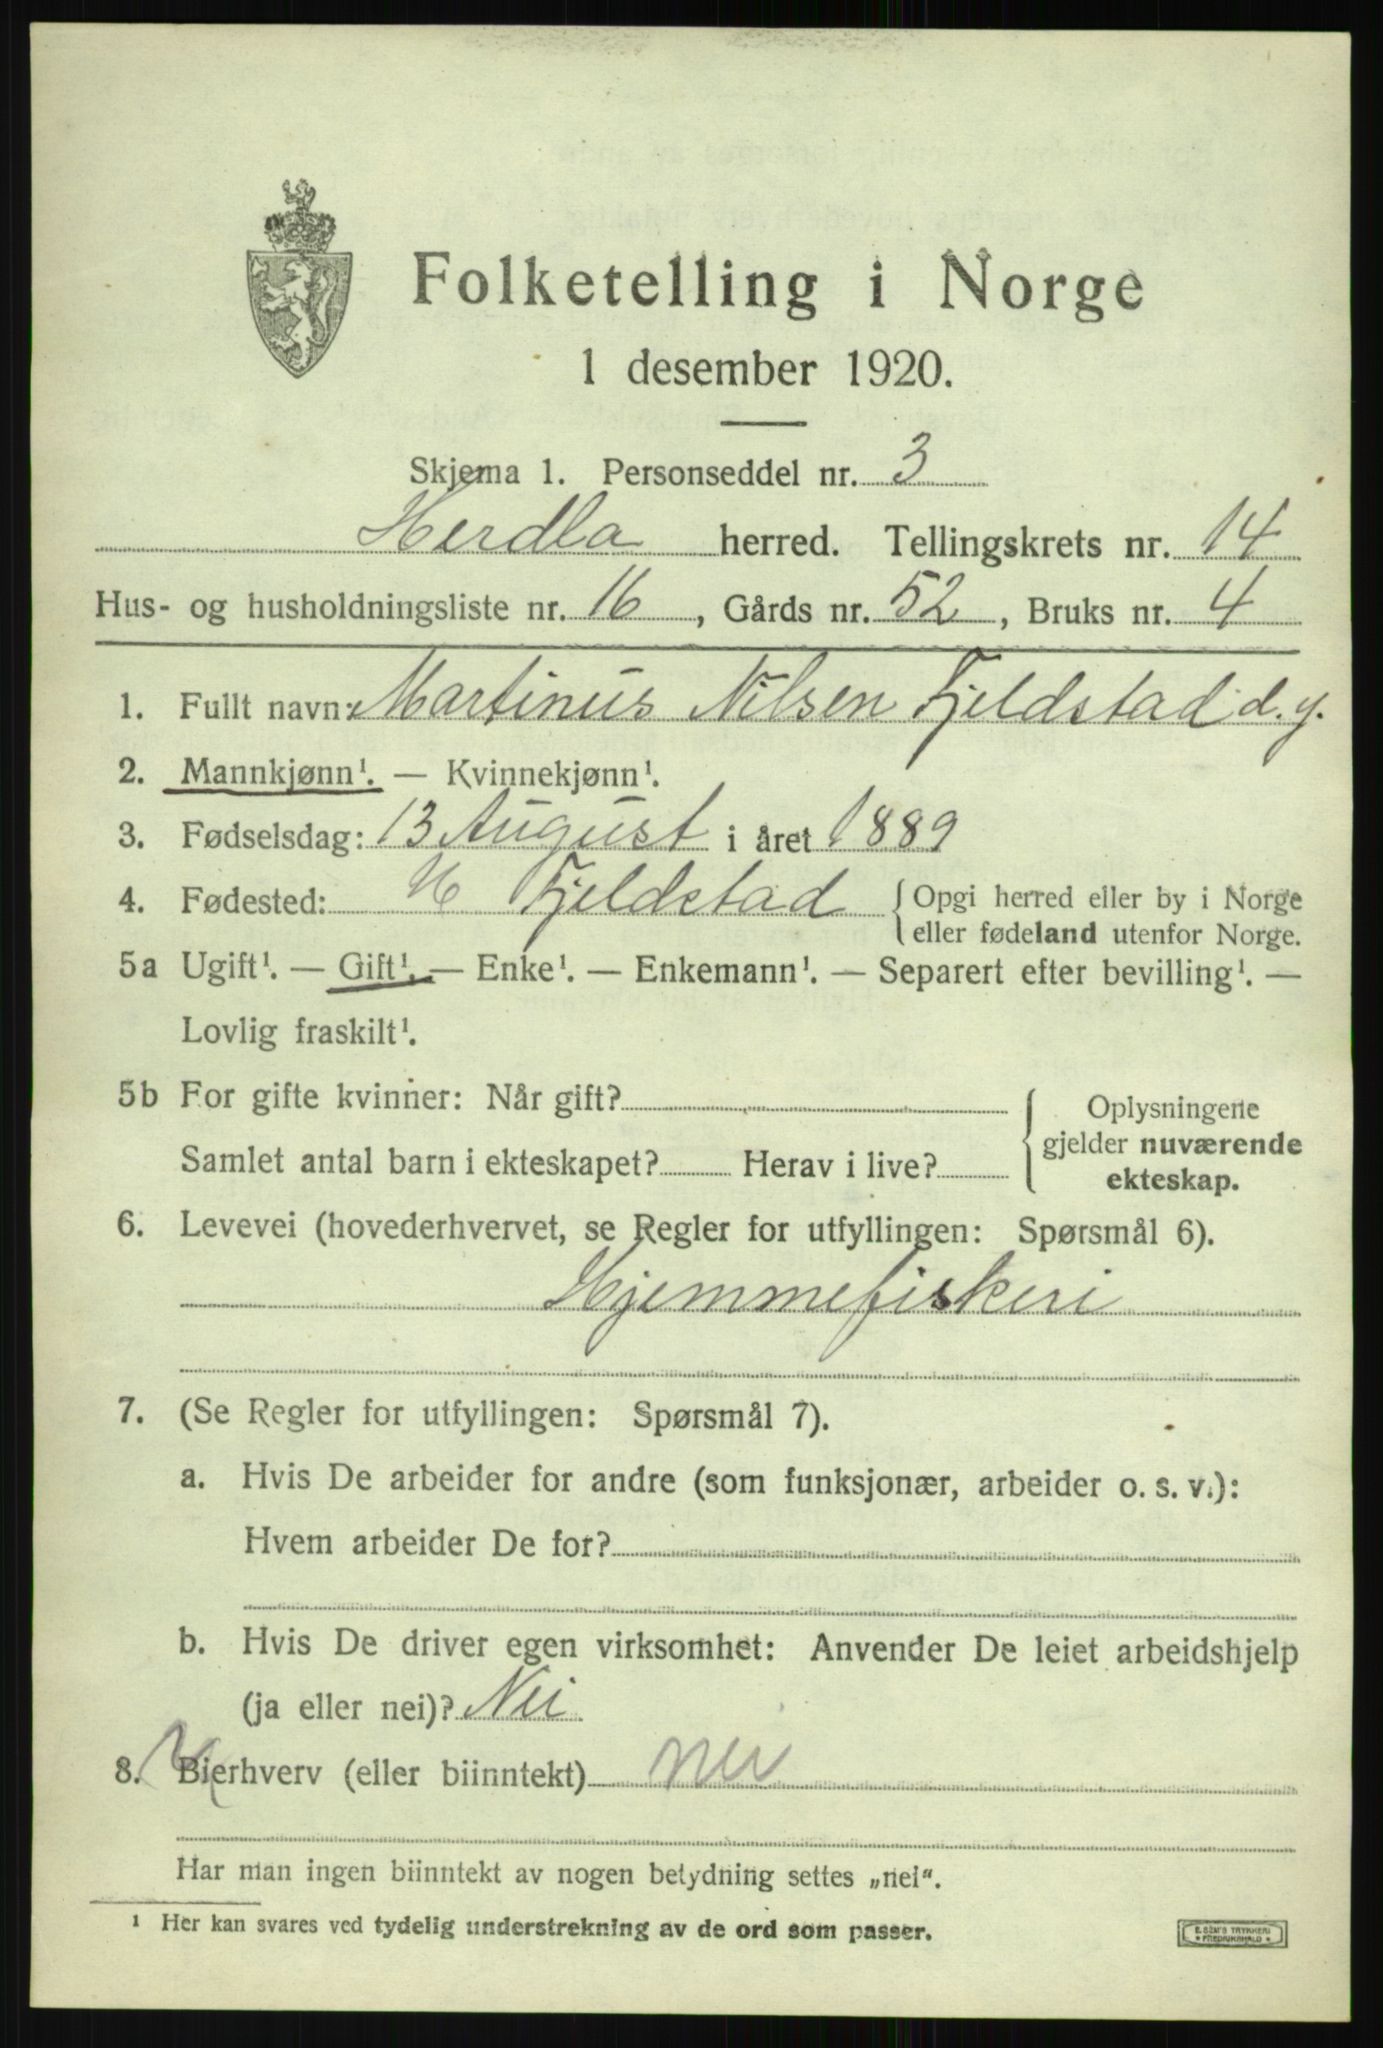 Folketelling i Norge
1 desember 1920.
Skjema 1. Personseddel nr. 3
Herdla herred. Tellingskrets nr. 14
Hus- og husholdningsliste nr. 16, Gårds nr. 52, Bruks nr. 4
1. Fullt navn: Martinus Nilsen Fjeldstad d. y.
2. Mannkjønn¹. — Kvinnekjønn¹.
3. Fødselsdag: 13 August i året 1889
4. Fødested: H Fjeldstad {Opgi herred eller by i Norge
eller fødeland utenfor Norge.
5a Ugift¹. — Gift¹. — Enke¹. — Enkemann¹. — Separert efter bevilling¹. —
Lovlig fraskilt¹.
5b For gifte kvinner: Når gift?
Samlet antal barn i ekteskapet? Herav i live?
{Oplysningene
gjelder nuværende
ekteskap.
6. Levevei (hovederhvervet, se Regler for utfyllingen: Spørsmål 6).
Hjemmefiskeri
7. (Se Regler for utfyllingen: Spørsmål 7).
a. Hvis De arbeider for andre (som funksjonær, arbeider o. s. v.):
Hvem arbeider De for?
b. Hvis De driver egen virksomhet: Anvender De leiet arbeidshjelp
(ja eller nei)? Nei
8. Bierhverv (eller biinntekt) nei
Har man ingen biinntekt av nogen betydning settes „nei“.
¹ Her kan svares ved tydelig understrekning av de ord som passer.
E. SEM'S TRYKKERI
* FREDRIKSHALD *